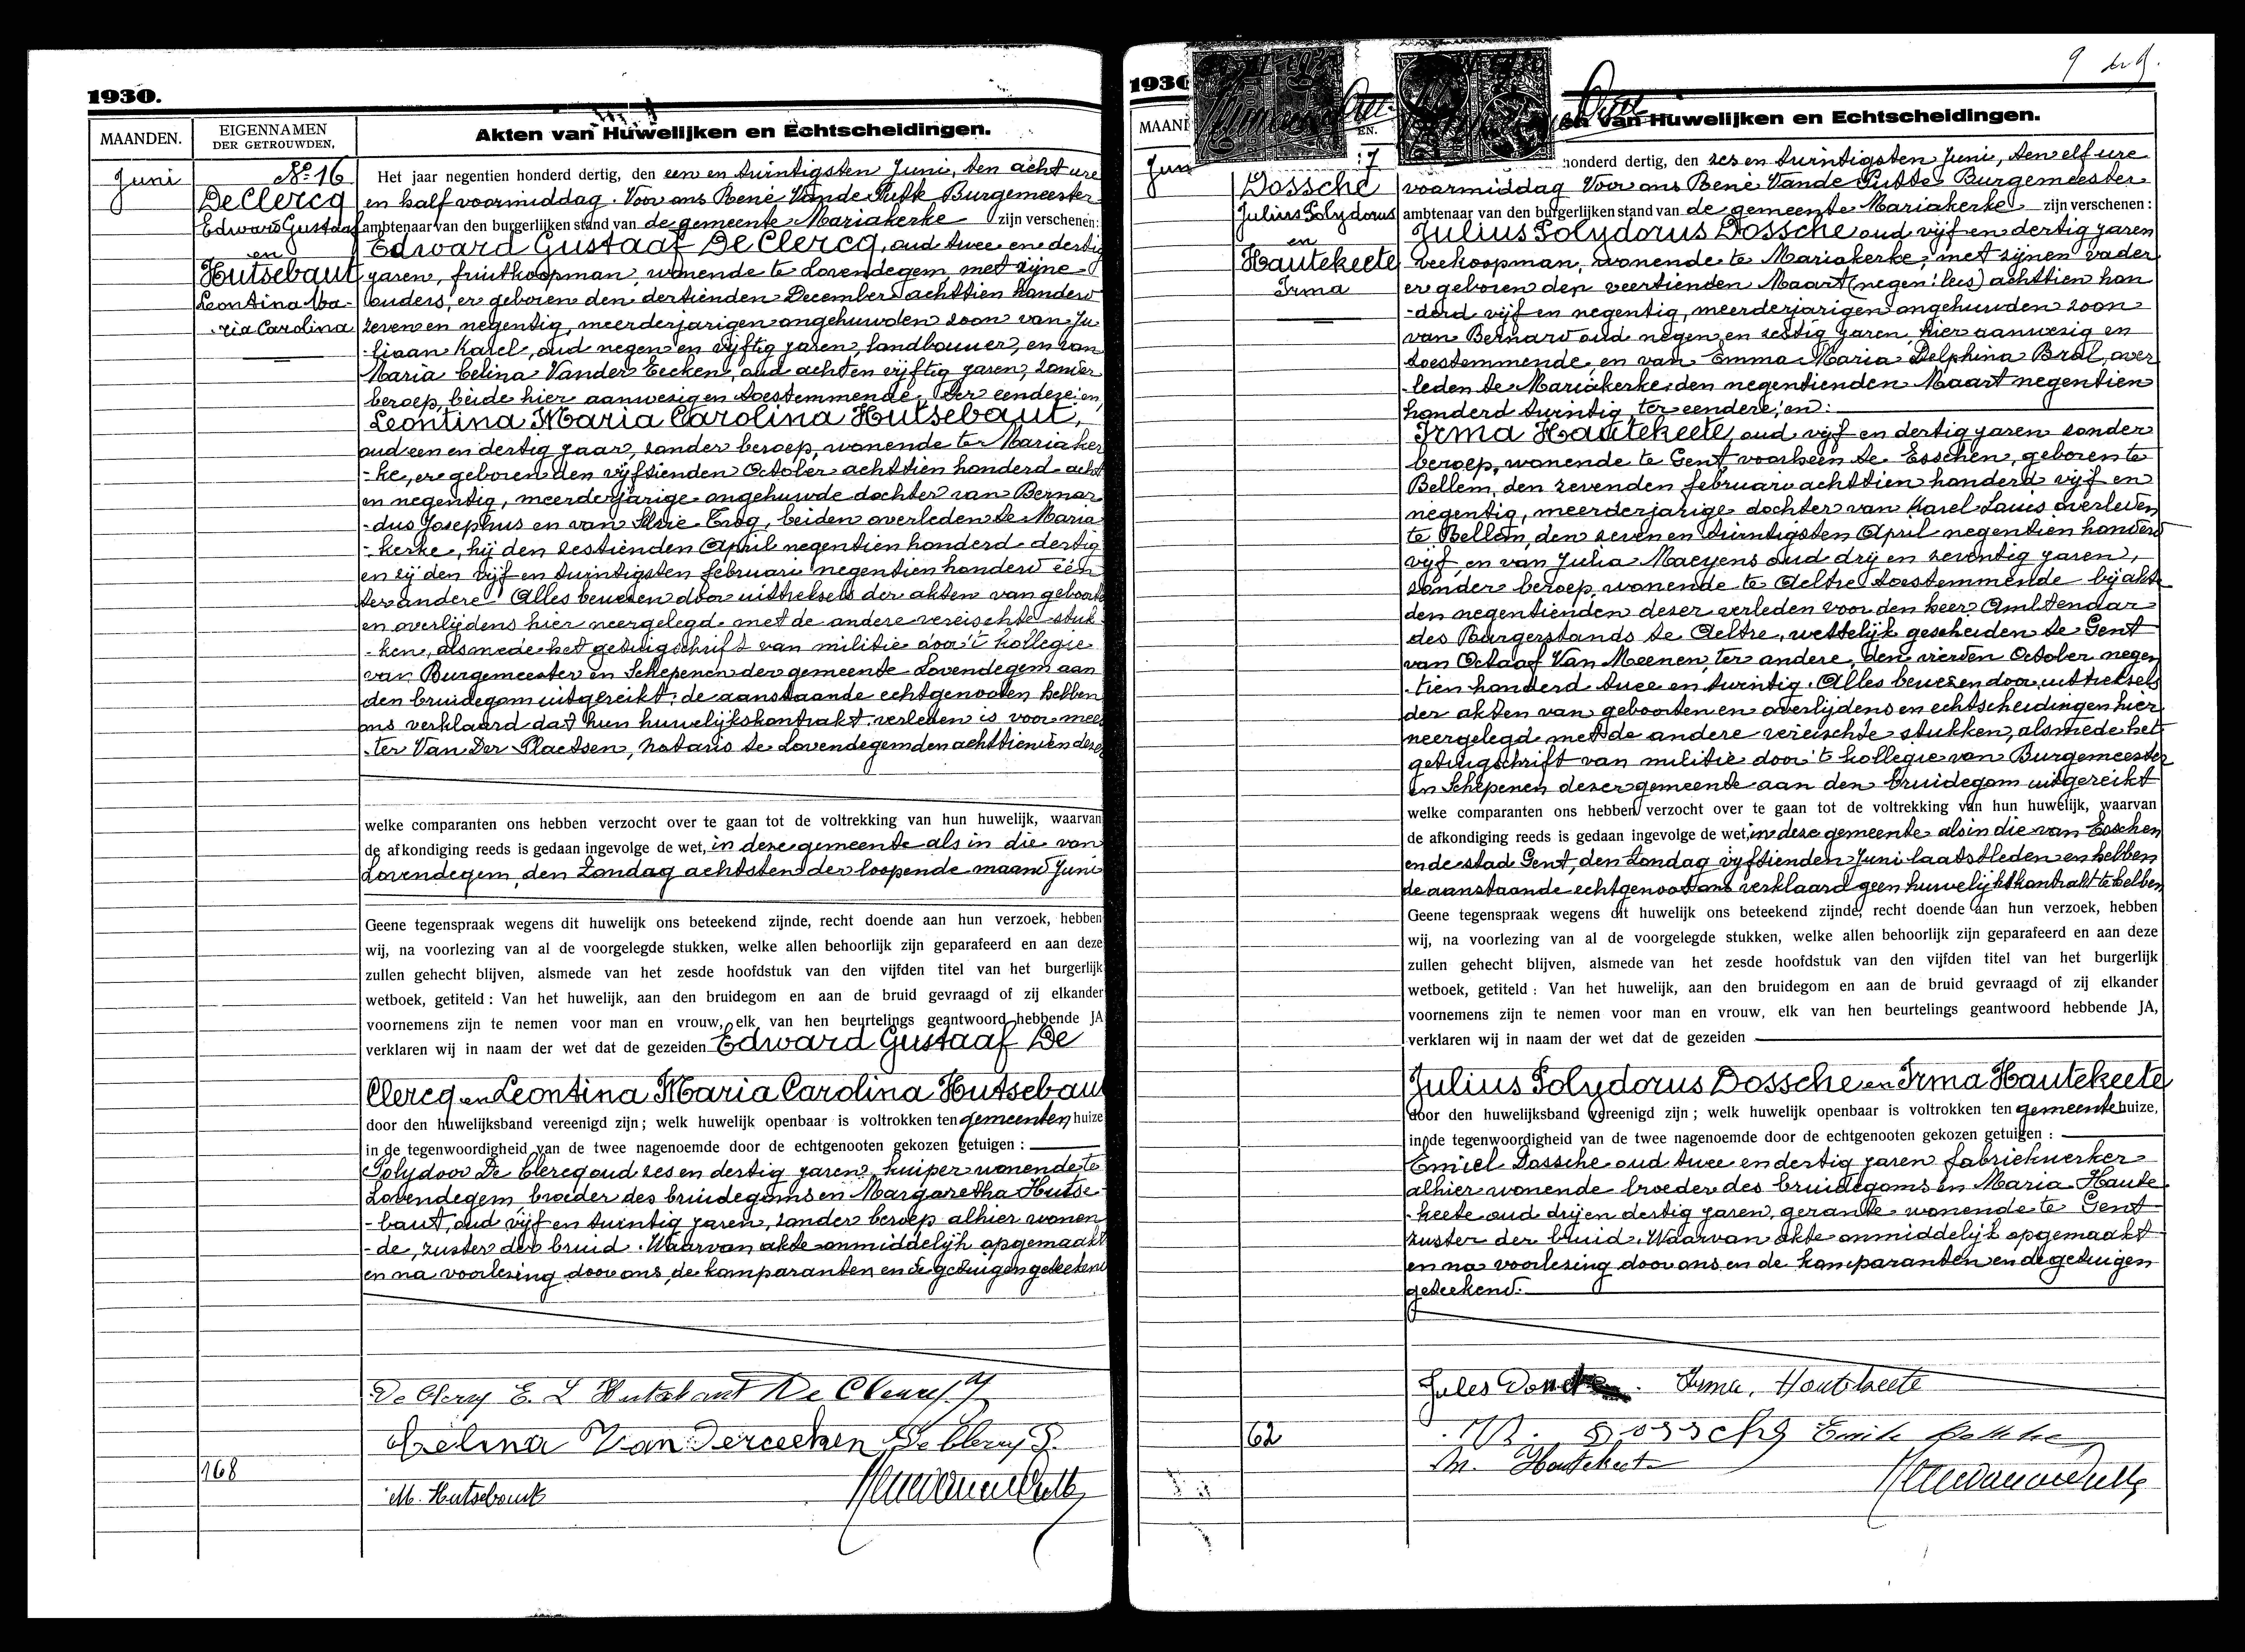 1930.
MAANDEN.
EIGENNAMEN
DER GETROUWDEN.
Akten van Huwelijken en Echtscheidingen.
Juni
No 16
De Clercq
Edward Gustaaf
en
Hutsebaut
Leontina Ma-
ria Carolina
Het jaar negentien honderd dertig, den een en twintigsten Juni, ten acht ure
en half voormiddag. Voor ons René Vande Putte Burgemeester
ambtenaar van den burgerlijken stand van de gemeente Mariakerke zijn verschenen:
Edward Gustaaf De Clercq, oud twee en dertig
jaren, fruitkoopman, wonende te Lovendegem, met zijne
ouders, er geboren den dertienden December achttien honderd
zeven en negentig, meerderjarigen ongehuwden zoon van Ju
liaan Karel, oud negen en vijftig jaren, landbouwer, en van
Maria Celina Vander Eecken, oud acht en vijftig jaren, zonder
beroep, beide hier aanwezig en toestemmende, ter eendere; en,
Leontina Maria Carolina Hutsebaut,
oud een en dertig jaar, zonder beroep, wonende te Mariaker
-ke, er geboren den vijftienden October achttien honderd acht
en negentig, meerderjarige ongehuwde dochter van Bernar
-dus Josephus en van Elsie Trog, beiden overleden te Maria
-kerke, hij den zestienden April negentien honderd dertig
en zij den vijf en twintigsten februari negentien honderd één
ter andere. Alles bewezen door uittreksels der akten van geboorte
en overlijdens hier neergelegd met de andere vereischte stuk
-ken, alsmede het getuigschrift van militie door 't kollegie
van Burgemeester en Schepenen der gemeente Lovendegem aan
den bruidegom uitgereikt; de aanstaande echtgenooten hebben
ons verklaard dat hun huwelijkskontrakt verleden is voor mees
-ter Van Der Plaetsen, notaris te Lovendegem den achttienden dezer
welke comparanten ons hebben verzocht over te gaan tot de voltrekking van hun huwelijk, waarvan
de afkondiging reeds is gedaan ingevolge de wet, in deze gemeente als in die van
Lovendegem, den Zondag achtsten der loopende maand Juni
Geene tegenspraak wegens dit huwelijk ons beteekend zijnde, recht doende aan hun verzoek, hebben
wij, na voorlezing van al de voorgelegde stukken, welke allen behoorlijk zijn geparafeerd en aan deze
zullen gehecht blijven, alsmede van het zesde hoofdstuk van den vijfden titel van het burgerlijk
wetboek, getiteld : Van het huwelijk, aan den bruidegom en aan de bruid gevraagd of zij elkander
voornemens zijn te nemen voor man en vrouw, elk van hen beurtelings geantwoord hebbende JA
verklaren wij in naam der wet dat de gezeiden Edward Gustaaf De
Clercq en Leontina Maria Carolina Hutsebaut
door den huwelijksband vereenigd zijn ; welk huwelijk openbaar is voltrokken ten gemeenten huize
in de tegenwoordigheid van de twee nagenoemde door de echtgenooten gekozen getuigen :
Polydoor De Clercq oud zes en dertig jaren, kuiper wonende te
Lovendegem, broeder des bruidegoms en Margaretha Hutse
-baut, oud vijf en twintig jaren, zonder beroep alhier wonen
-de, zuster der bruid. Waarvan akte onmiddelijk opgemaakt
en na voorlezing door ons, de komparanten en de getuigen geteekend
De Clercq E. L Hutsebaut De Clercq
Celina Van Dereecken De Clercq P.
168
M. Hutsebaut
1930
9
MAANDEN
EN.
en van Huwelijken en Echtscheidingen.
Juni
17
Dossche
Julius Polydorus
en
Hautekeete
Irma
honderd dertig, den zes en twintigsten Juni, ten elf ure
voormiddag Voor ons René Vande Putte Burgemeester
ambtenaar van den burgerlijken stand van de gemeente Mariakerke zijn verschenen :
Julius Polydorus Dossche oud vijf en dertig jaren
veekoopman, wonende te Mariakerke, met zijnen vader
er geboren den veertienden Maart (negen: lees) achttien hon
-derd vijf en negentig, meerderjarigen ongehuwden zoon
van Bernard oud negen en zestig jaren, hier aanwezig en
toestemmende, en van Emma Maria Delphina Bral, over
-leden te Mariakerke den negentienden Maart negentien
honderd twintig, ter eendere; en:
Irma Hautekeete, oud vijf en dertig jaren zonder
beroep, wonende te Gent, voorheen te Esschen, geboren te
Bellem, den zevenden februari achttien honderd vijf en
negentig, meerderjarige dochter van Karel Louis overleden
te Bellem, den zeven en twintigsten April negentien honderd
vijf, en van Julia Maeyens oud drij en zeventig jaren,
zonder beroep, wonende te Aeltre toestemmende bij akt
den negentienden dezer verleden voor den heer Ambtenaar
des Burgerstands te Aeltre, wettelijk gescheiden te Gent
van Octaaf Van Meenen, ter andere, den vierden October negen
-tien honderd twee en twintig. Alles bewezen door uittreksels
der akten van geboorten en overlijdens en echtscheidingen hier
neergelegd met de andere vereischte stukken, alsmede het
getuigschrift van militie door 't kollegie van Burgemeester
en Schepenen dezer gemeente aan den bruidegom uitgereikt
welke comparanten ons hebben verzocht over te gaan tot de voltrekking van hun huwelijk, waarvan
de afkondiging reeds is gedaan ingevolge de wet, in deze gemeente als in die van Esschen
en de stad Gent, den Zondag vijftienden Juni laatstleden en hebben
de aanstaande echtgenooten ons verklaard geen huwelijkskontrakt te hebben
Geene tegenspraak wegens dit huwelijk ons beteekend zijnde, recht doende aan hun verzoek, hebben
wij, na voorlezing van al de voorgelegde stukken, welke allen behoorlijk zijn geparafeerd en aan deze
zullen gehecht blijven, alsmede van het zesde hoofdstuk van den vijfden titel van het burgerlijk
wetboek, getiteld : Van het huwelijk, aan den bruidegom en aan de bruid gevraagd of zij elkander
voornemens zijn te nemen voor man en vrouw, elk van hen beurtelings geantwoord hebbende JA,
verklaren wij in naam der wet dat de gezeiden
Julius Polydorus Dossche en Irma Hautekeete
door den huwelijksband vereenigd zijn ; welk huwelijk openbaar is voltrokken ten gemeente huize,
in de tegenwoordigheid van de twee nagenoemde door de echtgenooten gekozen getuigen :
Emiel Dossche oud twee en dertig jaren fabriekwerker
alhier wonende broeder des bruidegoms en Maria Haute
-keete oud drij en dertig jaren, gerante wonende te Gent
zuster der bruid. Waarvan akte onmiddelijk opgemaakt
en na voorlezing door ons en de komparanten en de getuigen
geteekend.
Jules Irma. Hautekeete
62
Dossche Emile
M. Hautekeete